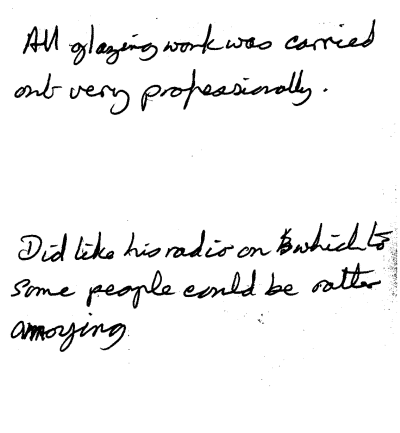 All glazing work was carried
out very professionally.
Did like his radio on which to
some people could be rather
annoying